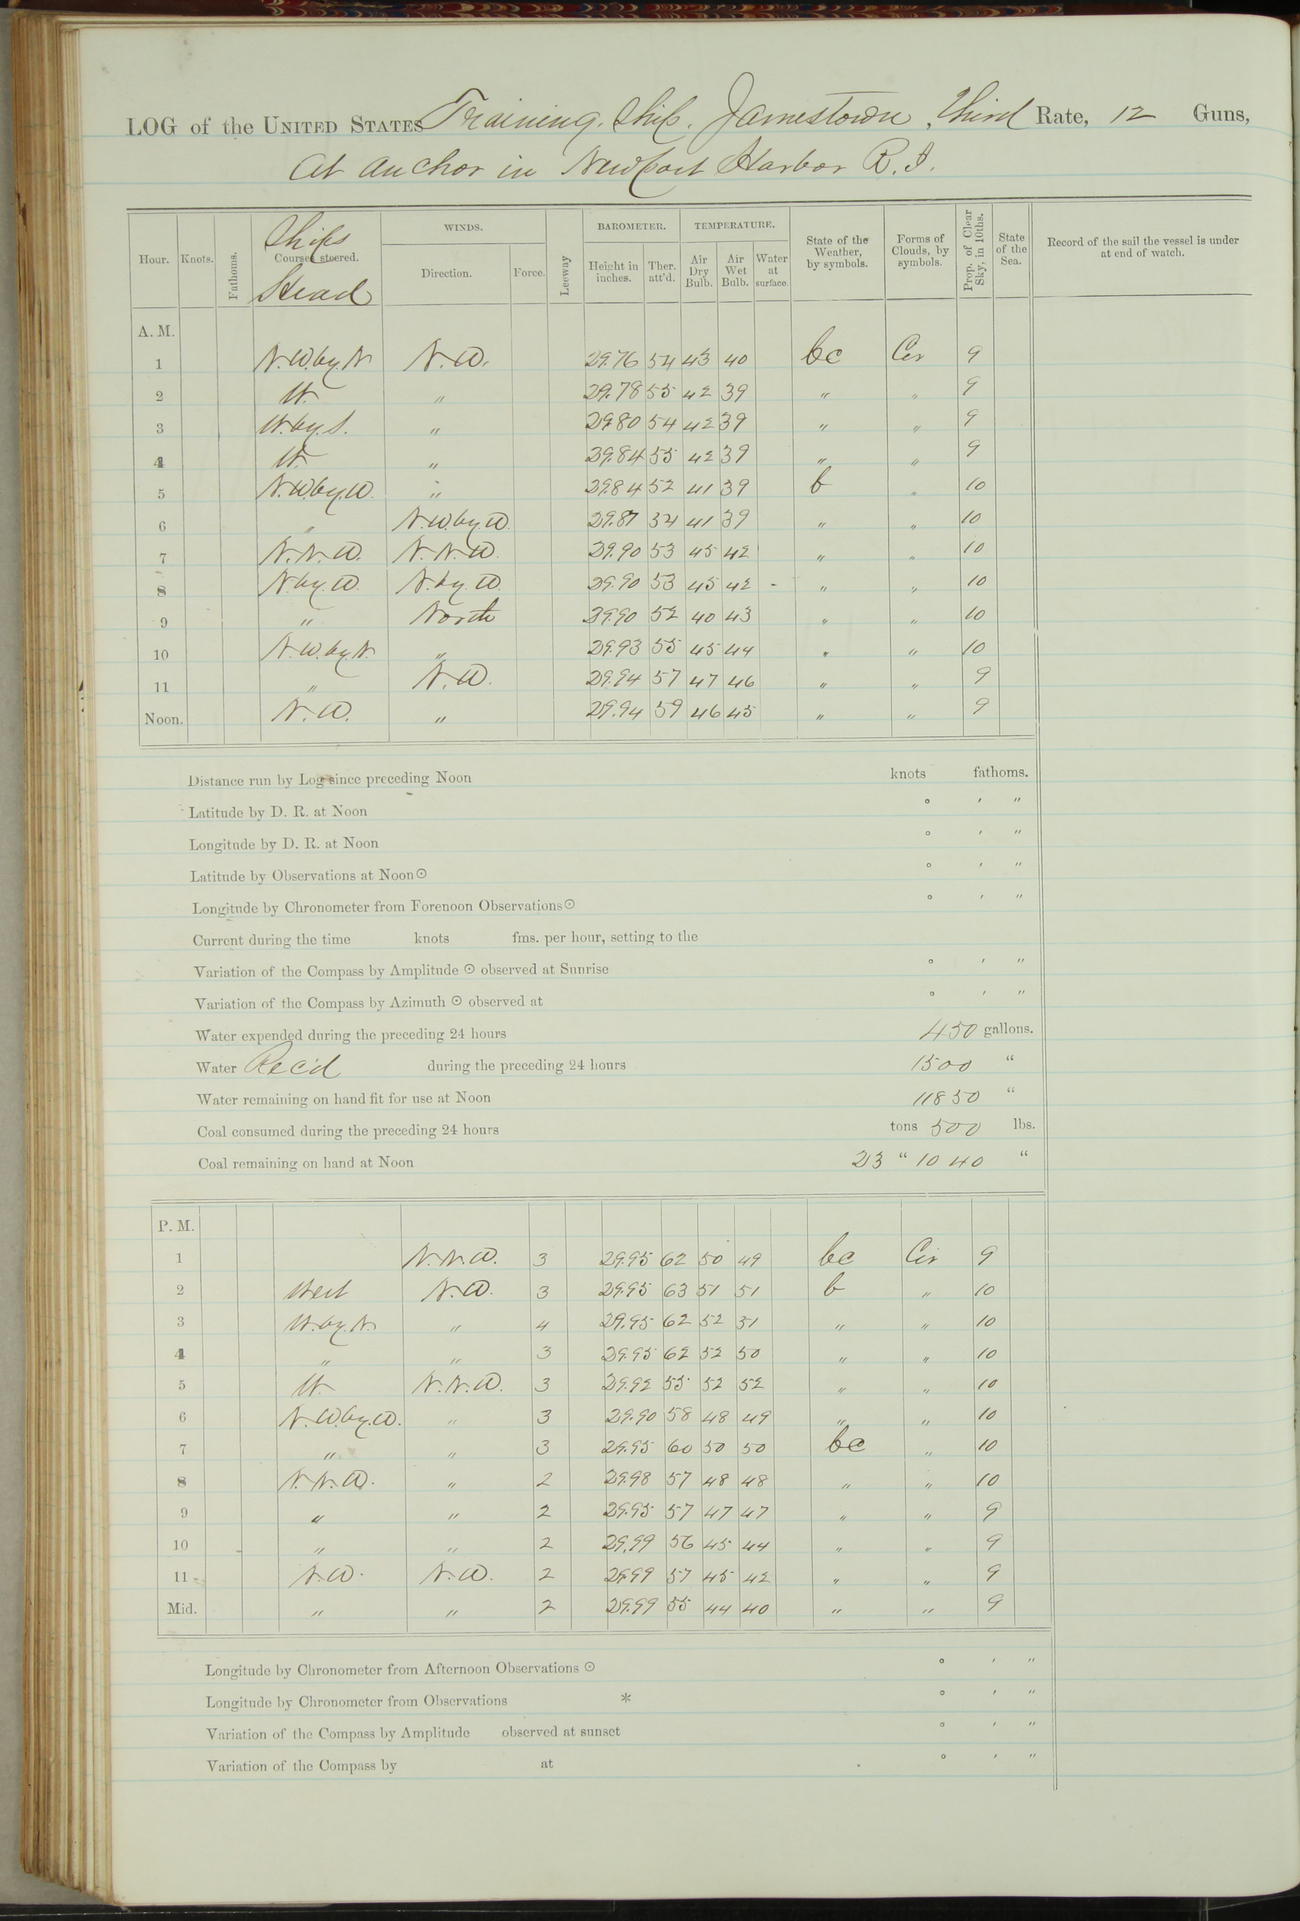 LOG of the UNITED STATES Training Ship. Jamestown, Third Rate, 12 Guns,
At anchor in Newport Harbor R.I.
Hour. Knots. Fathoms. Ships Courses steered. Head WINDS. Direction. Force. Leeway BAROMETER. Height in inches. Ther. att'd. TEMPERATURE. Air Dry Bulb. Air Wet Bulb. Water at surface. State of the Weather, by symbols. Forms of Clouds, by symbols. Prop. of Clear Sky, in 10ths. State of the Sea. Record of the sail the vessel is under at end of watch.
A. M.
1 N.W.by.N N.W. 29.76 54 43 40 bc Cir 9
2 W. " 29.78 55 42 39 " " 9
3 W.by.S. " 29.80 54 42 39 " " 9
4 W. " 29.84 55 42 39 " " 9
5 N.W.by.W. " 29.84 52 41 39 b " 10
6 " N.W.by.W. 29.87 34 41 39 " " 10
7 N.N.W. N.N.W. 29.90 53 45 42 " " 10
8 N.by.W. N.by.W. 29.90 53 45 42 - " " 10
9 " North 29.90 52 40 43 " " 10
10 N.W.by.N. " 29.93 55 45 44 " " 10
11 " N.W. 29.94 57 47 46 " " 9
Noon. N.W. " 29.94 59 46 45 " " 9
Distance run by Log since preceding Noon knots fathoms.
Latitude by D. R. at Noon ° ′ ″
Longitude by D. R. at Noon ° ′ ″
Latitude by Observations at Noon ☉ ° ′ ″
Longitude by Chronometer from Forenoon Observations ☉ ° ′ ″
Current during the time knots fms. per hour, setting to the
Variation of the Compass by Amplitude ☉ observed at Sunrise ° ′ ″
Variation of the Compass by Azimuth ☉ observed at ° ′ ″
Water expended during the preceding 24 hours 450 gallons.
Water Rec'd during the preceding 24 hours 1500 "
Water remaining on hand fit for use at Noon 11850 "
Coal consumed during the preceding 24 hours tons 500 lbs.
Coal remaining on hand at Noon 23 " 1040 "
P. M.
1 N.N.W. 3 29.95 62 50 49 bc Cir 9
2 West N.W. 3 29.95 63 51 51 b " 10
3 W.by.N " 4 29.95 62 52 51 " " 10
4 " " 3 29.95 62 52 50 " " 10
5 W. N.N.W. 3 29.92 55 52 52 " " 10
6 N.W.by.W. " 3 29.90 58 48 49 " " 10
7 " " 3 29.95 60 50 50 bc " 10
8 N.N.W. " 2 29.98 57 48 48 " " 10
9 " " 2 29.95 57 47 47 " " 9
10 " " 2 29.99 56 45 44 " " 9
11 N.W. N.W. 2 29.99 57 45 42 " " 9
Mid. " " 2 29.99 55 44 40 " " 9
Longitude by Chronometer from Afternoon Observations ☉ ° ′ ″
Longitude by Chronometer from Observations * ° ′ ″
Variation of the Compass by Amplitude observed at sunset ° ′ ″
Variation of the Compass by at ° ′ ″